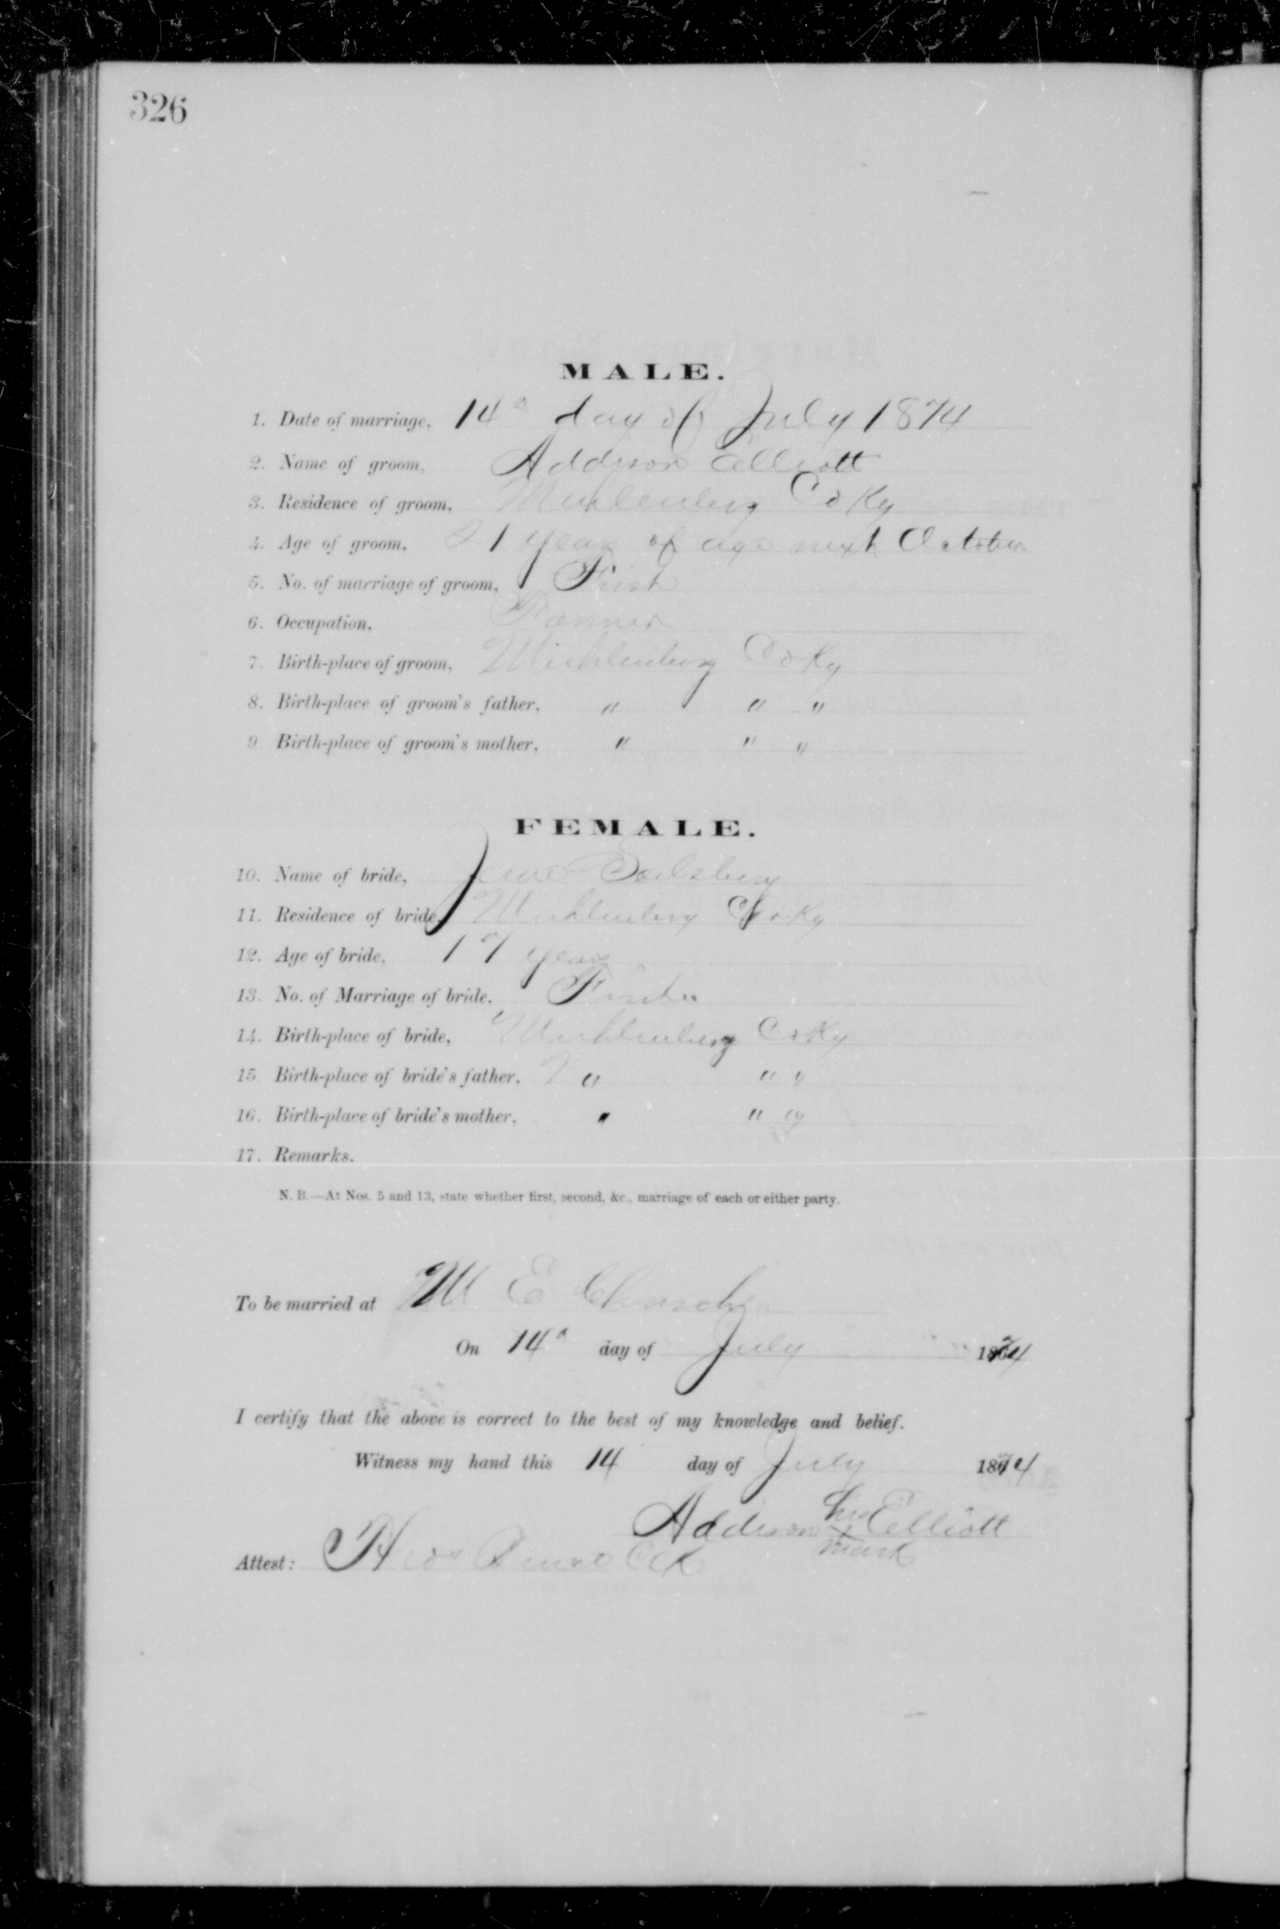 326
MALE.
1. Date of marriage, 14" day of July 1874
2. Name of groom, Addison Elliott
3. Residence of groom, Muhlenberg Co Ky
4. Age of groom, 21 years of age next October
5. No. of marriage of groom, First
6. Occupation, Farmer
7. Birth-place of groom, Muhlenberg Co Ky
8. Birth-place of groom's father, " " "
9. Birth-place of groom's mother, " " "
FEMALE.
10. Name of bride,
11. Residence of bride, Muhlenberg Co Ky
12. Age of bride, 17 years
13. No. of Marriage of bride, First
14. Birth-place of bride, Muhlenberg Co Ky
15. Birth-place of bride's father, " " "
16. Birth-place of bride's mother, " " "
17. Remarks.
N. B.—At Nos. 5 and 13, state whether first, second, &c., marriage of each or either party.
To be married at M E Church
On 14" day of July 1874
I certify that the above is correct to the best of my knowledge and belief.
Witness my hand this 14 day of July 1874
Addison his Elliott
mark
Attest: Clk